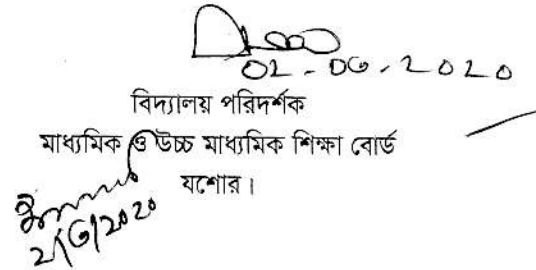 02-06-2020
বিদ্যালয় পরিদর্শক
মাধ্যমিক ও উচ্চ মাধ্যমিক শিক্ষা বোর্ড
যশোর।
2/6/2020